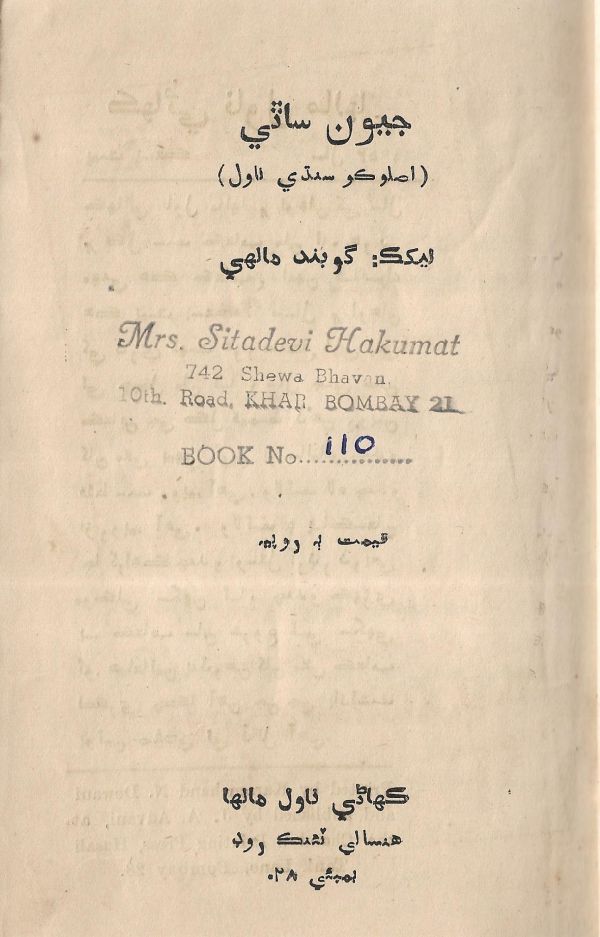 جيون ساٿي
(اصلوڪو سنڌي ناول)
ليکڪ: گوبند مالهي
Mrs. Sitadevi Hakumat
742 Shewa Bhavan,
10th. Road, KHAR BOMBAY 21.
BOOK No. 110
قيمت ٻه روپيه
ڪهاڻي ناول مالها
هنسالي ٽئنڪ روڊ
بمبئي ۲۸.